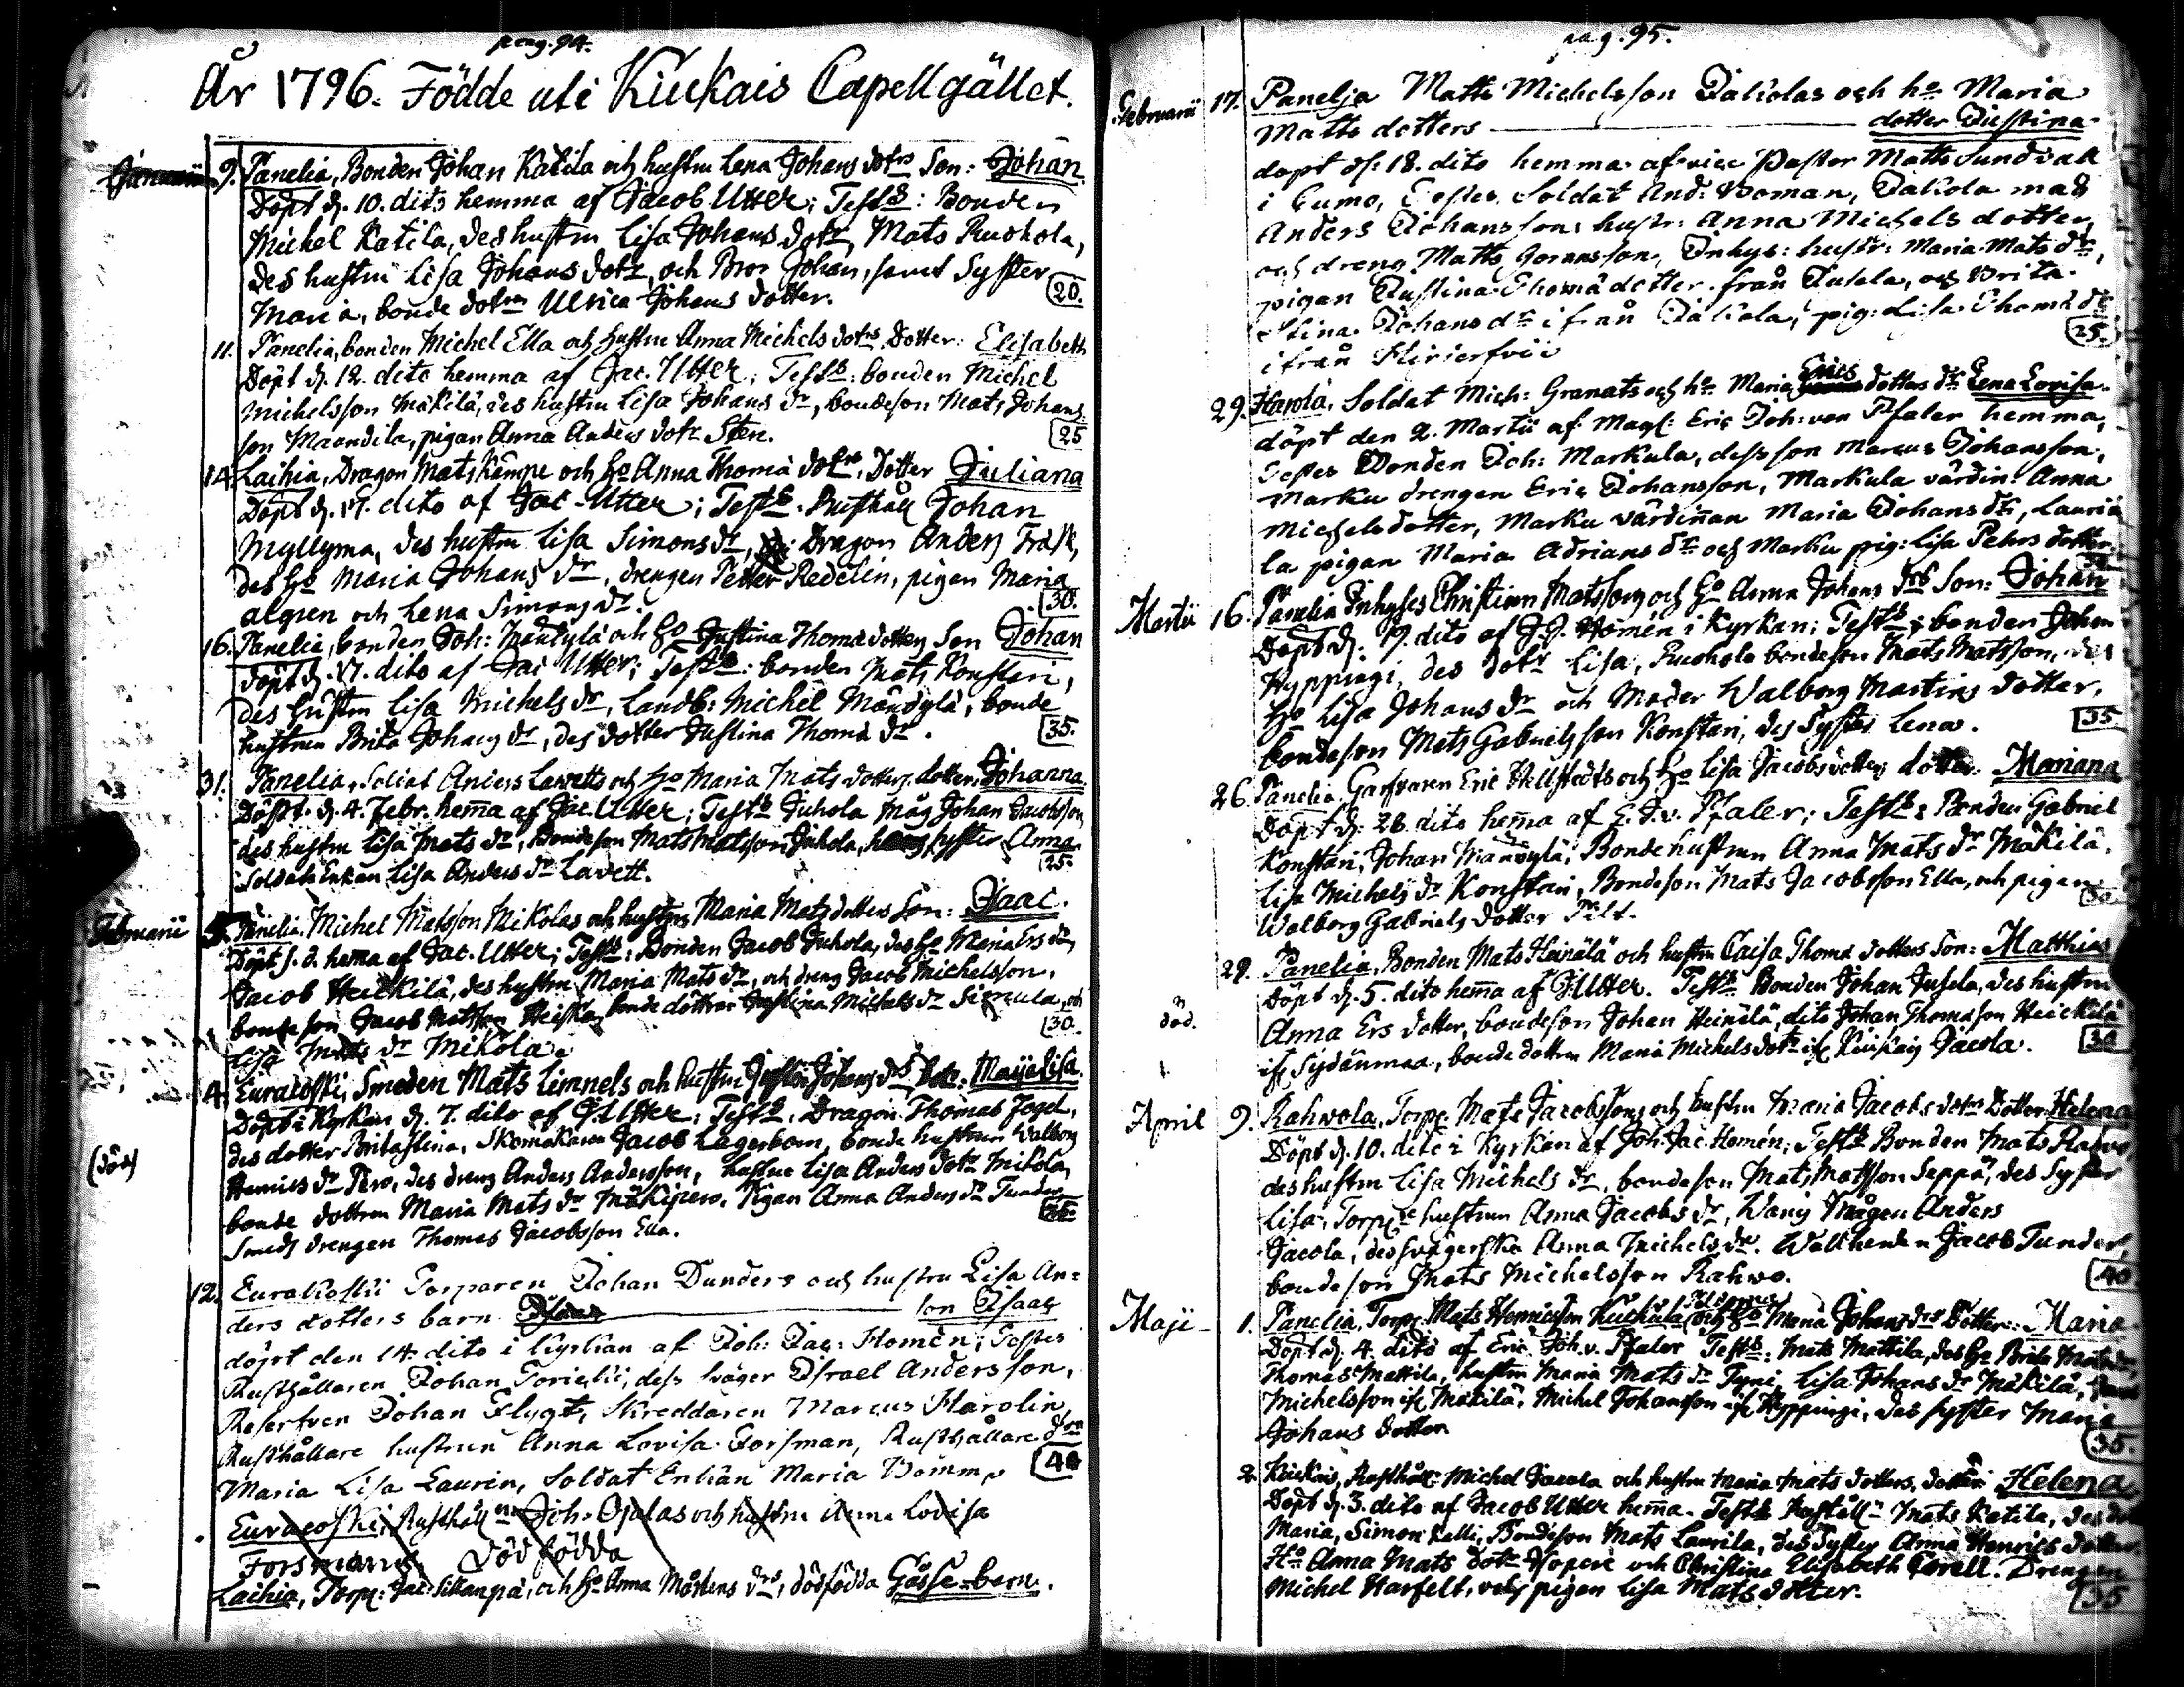 pag. 94.
År 1796. Födde uti Kiukais Capellgället.
Januarii 9. Panelia, Bonden Johan Katila och hustru Lena Johans dotrs Son: Johan
Döpt d. 10. dito hemma af Jacob Utter; Test: Bonden
Michel Katila, des hustru Lisa Johans dotr, Mats Ruohola,
des hustru Lisa Johans dotr, och Bror Johan, samt Syster
Maria, bonde dotren Ulrica Johans dotter. 20.
11. Panelia, bonden Michel Ella och hustru Anna Michels dotrs Dotter: Elisabeth
Döpt d. 12. dito hemma af Jac. Utter; Test: bonden Michel
Michelsson Mäkilä, des hustru Lisa Johans dr, bondeson Mats Johans
son Maandila, pigan Anna Anders dotr Sten. 25
14. Laihia, Dragon Mats Kämpe och ho Anna Thoma dotrs, Dotter Juliana
Döpt d. 17. dito af Jac. Utter; Test: Rusthåll Johan
Myllyma, des hustru Lisa Simons dr, Dragon Anders Frisk,
des ho Maria Johans dr, drengen Petter Redelin, pigan Maria
algren och Lena Simons dr. 30.
16. Panelia, bonden Joh: Mandylä och ho Justina Thoma dotters Son Johan
Döpt d. 17. dito af Jac Utter; Test: bonden Mats Konstari,
des hustru Lisa Michels dr, Landb: Michel Mandylä, bonde
hustrun Brita Johans dr, des dotter Justina Thoma dr. 35.
31. Panelia, Soldat Anders Lavetts och ho Maria Mats dotters dotter, Johanna
Döpt. d. 4. Febr. hema af Jac. Utter; Test Juhola Måg Johan Jacobsson
des hustru Lisa Mats dr, Bondeson Mats Matsson Juhola, hans syster Anna
Soldat Enkan Lisa Anders dr Lavett. 25.
Februarii Panelia, Michel Matsson Mikolas och hustrus Maria Mats dotters Son: Isaac.
Döpt s. d. hema af Jac. Utter; Test: Bonden Jacob Juhola, des ho Maria Ers dr,
Jacob Heickilä, des hustru Maria Mats dr, och dreng Jacob Michelsson,
bondeson Jacob Matsson Heickilä, bonde döttrar Justina Michels dr Simula, och
Lisa Mats dr Mikola. 30.
4. Euracoski, Smeden Mats Limnels och hustru Johans drs dotr: Maija Lisa.
Döpt i Kyrkan d. 7. dito af J. Utter; Test: Dragon Thomas Fogel,
des dotter Brita Stina, Skomakaren Jacob Lagerbom, bonde hustrun Walborg
Henrics dr Pero, des dreng Anders Andersson, hustru Lisa Anders dotr Mikola,
(död) bonde dottren Maria Mats dr Mäkipero, Pigan Anna Anders dr Tunder
Smeds drengen Thomas Jacobsson Ella.
12. Eurakoski Torparen Johan Dunders och hustru Lisa An=
ders dotters barn son Isaac
döpt den 14. dito i kyrkan af Joh: Jac: Homén; Testes
Rusthållaren Johan Torickii, dess svåger Israel Andersson,
Reserfven Johan Flygt, Skreddaren Marcus Harolin,
Rusthållare hustrun Anna Lovisa Forsman, Rusthållare drn
Maria Lisa Laurin, Soldat Enkan Maria Bomm 40
Euracoski, Rusthålln Joh. Ojalas och hustru Anna Lovisa
Forsmans Död födda
Laihia, Torp: Jac: Sillanpä, och ho Anna Mårtens drs, dödfödda Gosse-barn.
pag. 95.
Februarii 17. Panelja Matts Michelsson Jakolas och ho Maria
Matts dotters dotter Justina
döpt d. 18. dito hemma af vice Pastor Matts Sundvall
i Eumo, Testes Soldat And: Boman, Jakola måg
Anders Johansson, hustr: Anna Michels dotter,
och dreng Matts Joransson, Inhys: hustr: Maria Mats dr,
pigan Justina Thomä dotter från Jusela, och Brita
Stina Johans dr ifrån Jakola, pig: Lisa Thomä dr
ifrån Hirierfvii 25.
29. Harola, Soldat Mich: Granats och ho Maria Erics dotters dr Lena Lovisa
döpt den 2. Martii af Mag: Eric Joh: von Pfaler hemma,
Testes Bonden Joh: Markula, dess son Marcus Johansson,
Marku drengen Eric Johansson, Markula värdin: Anna
Michelsdotter, Marku värdinnan Maria Johans dr, Lauria
la pigan Maria Adrians dr och Marku pig: Lisa Pehrs dotter.
Martii 16. Panelia Inhyses Christian Matssons och ho Anna Johans drs Son: Johan
Döpt d. 19. dito af J. J. Homén i Kyrkan; Test: bonden Johan
Hyppingi, des dotr Lisa, Ruohola bondeson Mats Matsson, des
ho Lisa Johans dr och Moder Walborg Martins dotter,
bondeson Mats Gabrielsson Konstari, des Syster Lena. 35.
26. Panelia, Garfvaren Eric Hellstedts och ho Lisa Jacobsdotters dotter: Mariana
Döpt d. 28. dito hema af E. J. v. Pfaler; Test: Bonden Gabriel
Konstari, Johan Mandylä, Bonde hustrun Anna Mats dr Mäkilä,
Lisa Michels dr Konstari, Bondeson Mats Jacobsson Ella, och pigan
Walborg Gabriels dotter Pilt.
29. Panelia, Bonden Mats Heinälä och hustru Caisa Thoma dotters Son: Matthias
Döpt d. 5. dito hema af J. Utter. Test: Bonden Johan Jusela, des hustru
död. Anna Ers dotter, bondeson Johan Heinälä, dito Johan Thomasson Heickilä
if: Sydänmaa, bonde dottren Maria Michels dotr if: Kiukais Jacola. 30
April 9. Rahwola, Torp: Mats Jacobssons och hustru Maria Jacobs dotrs Dotter Helena
Döpt d. 10. dito i Kyrkan af Joh. Jac. Homén; Test Bonden Mats Rahwo,
des hustru Lisa Michels dr, bondeson Mats Mattsson Seppä, des Syster
Lisa, Torpe hustrun Anna Jacobs dr, Wanis Mågen Anders
Jacola, des svägerska Anna Michels dr. Wallhenden Jacob Tunder,
bondeson Mats Michelsson Rahwo. 40
Maji 1. Panelia, Torp: Mats Henricsson Kuckula och ho Maria Johans drs Dotter: Maria
Döpt d. 4. dito af Eric Joh. v. Pfaler Test: Mats Mattila, des ho Brita Mats dr,
Thomas Mattila, hustru Maria Mats dr Tyni, Lisa Johans dr Mäkilä,
Michelsson if: Mäkilä, Michel Johansson if: Hyppingi, des syster Maria
Johans dotter 35.
2. Kiukais, Rusthåll: Michel Jacola och hustru Maria Mats dotters, dotter: Helena
Döpt d. 3. dito af Jacob Utter hema. Test: Rusthåll: Mats Katila, des
Maria, Simon Kalli, Bondeson Mats Laurila, des Syster Anna Henrics dotter
Ho Anna Mats dotr och Christina Elisabeth Forell. Drengen
Michel Harfelt, och pigan Lisa Mats dotter. 35